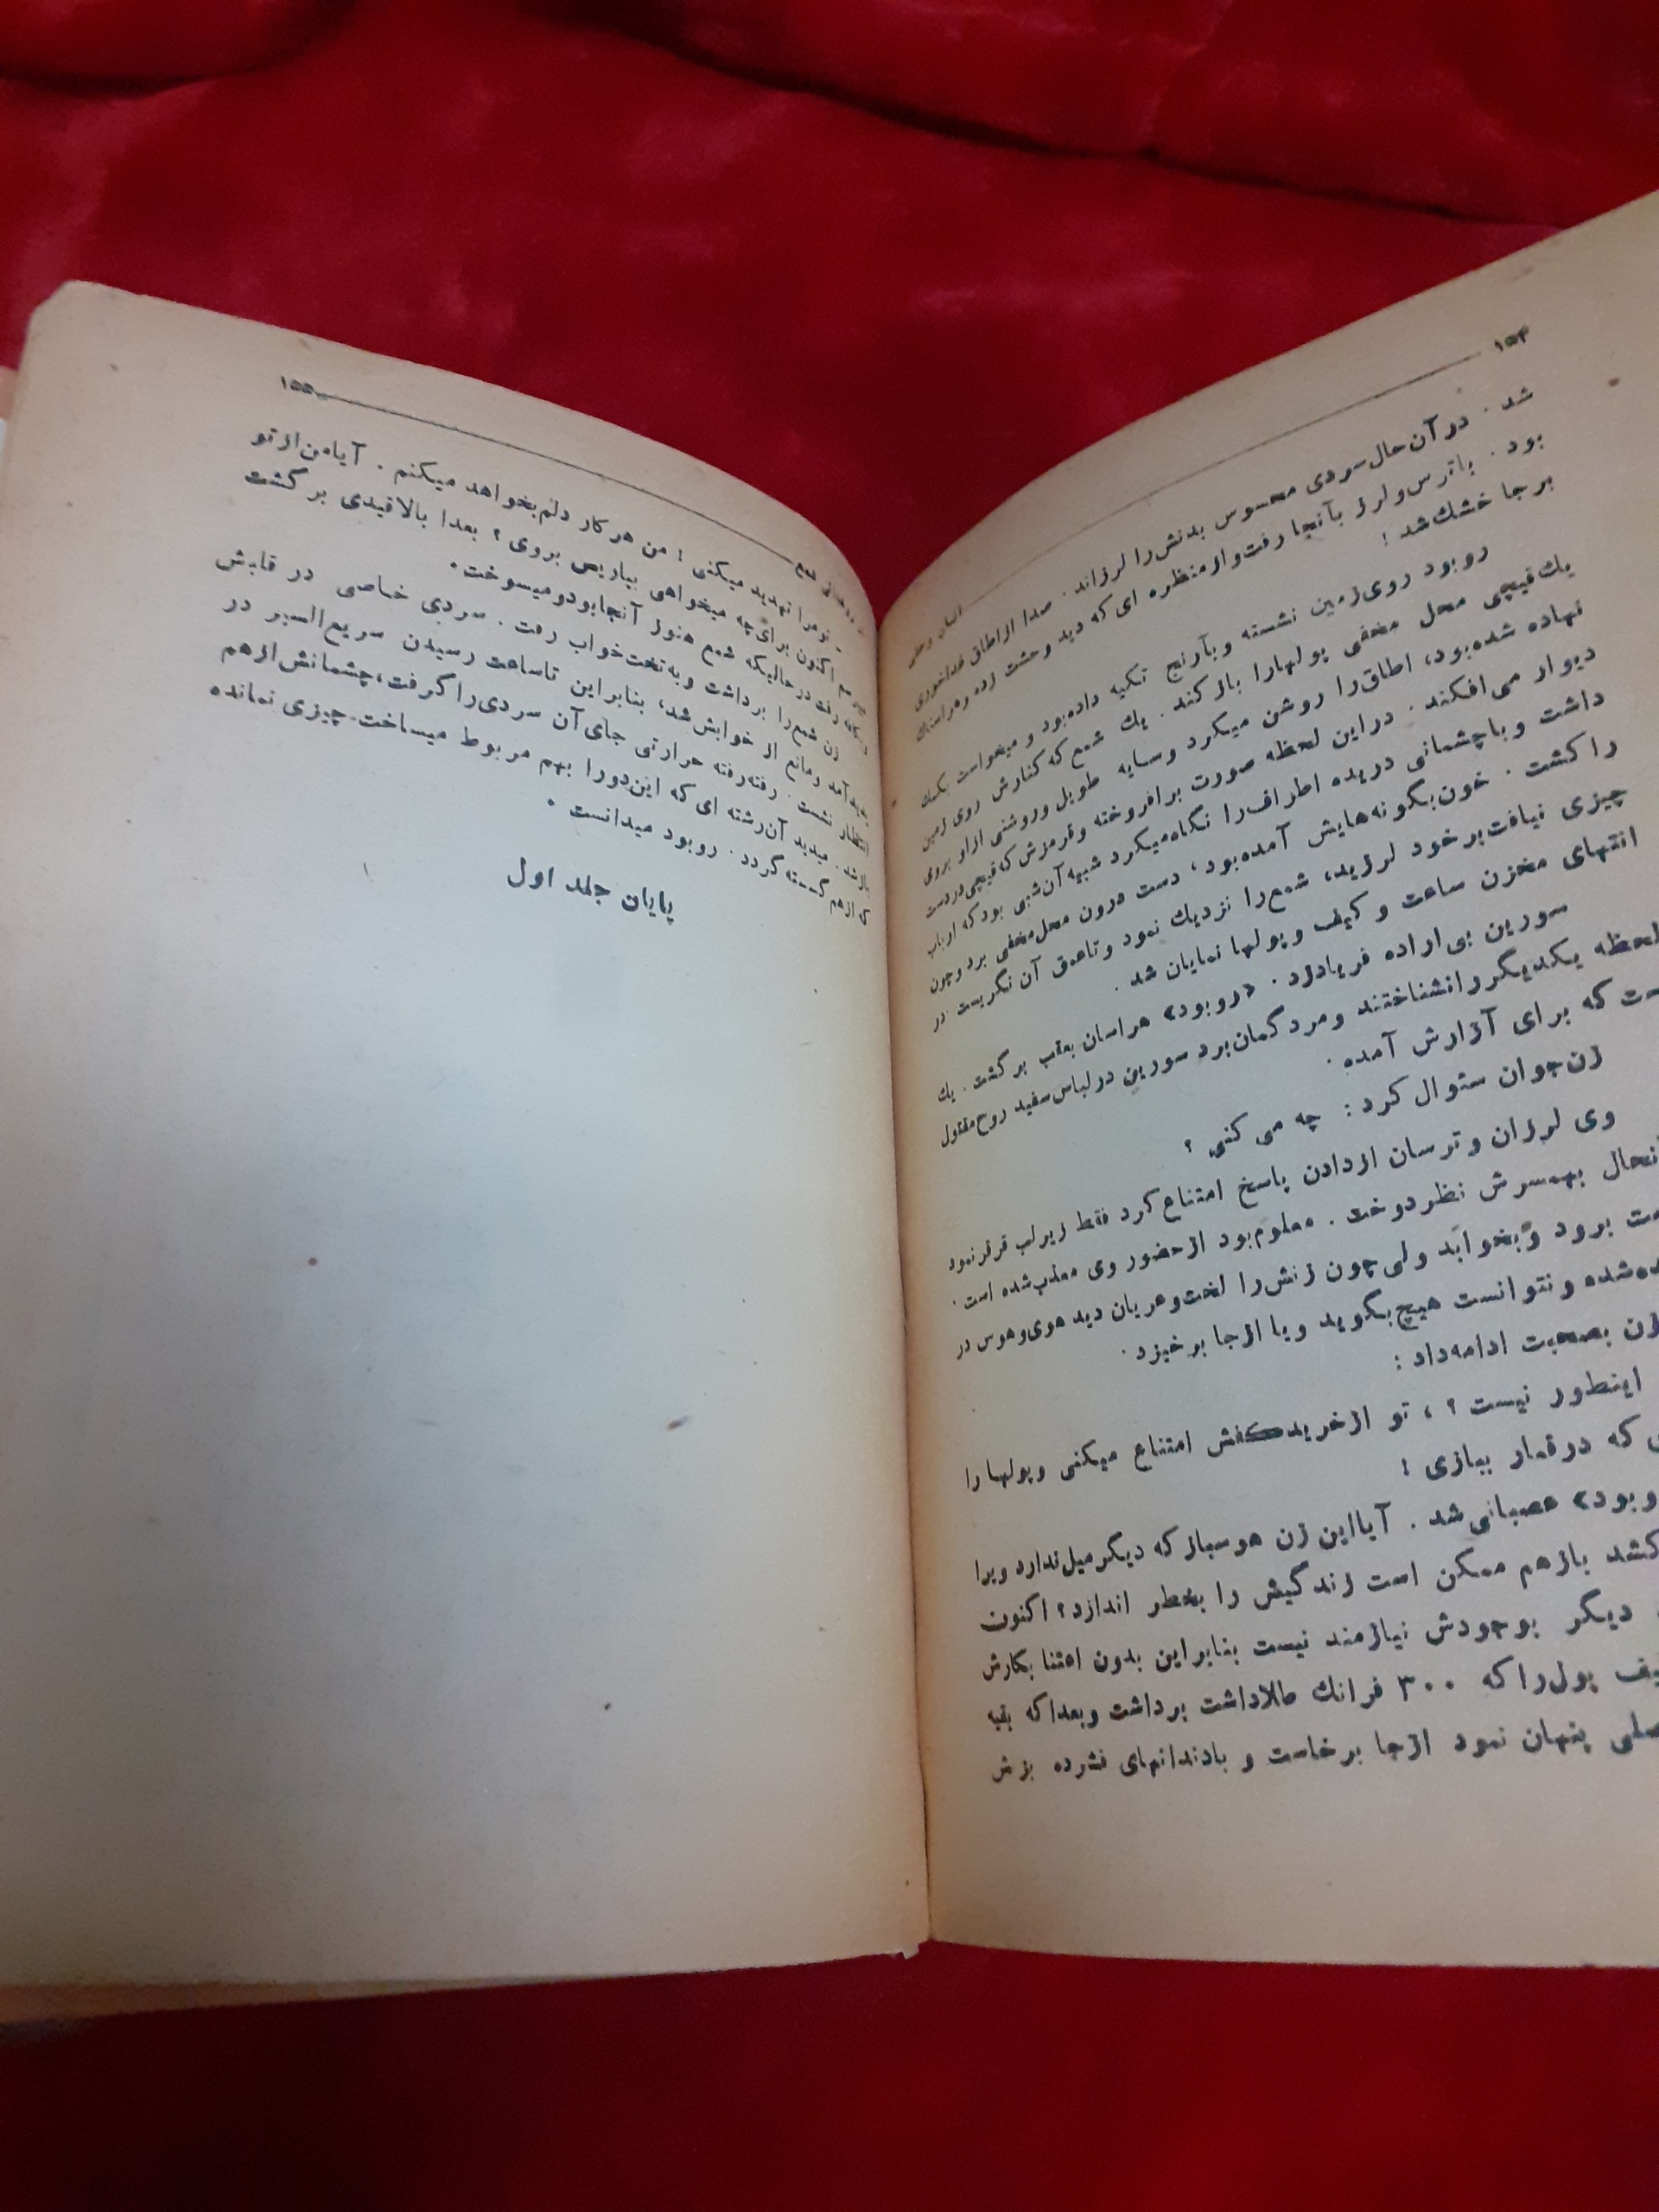 ۱۵۴
انسان وحشی
شد . در آن حال سردی محسوس بدنش را لرزاند . صدا از اطاق غذاخوری
بود . باترس و لرز بآنجا رفت و از منظره ای که دید وحشت زده و هراسناك
بر جا خشك شد !
روبود روی زمین نشسته و بآرنج تکیه داده بود و میخواست بکمك
یك قیچی محل مخفی پولهارا باز کند . یك شمع که کنارش روی زمین
نهاده شده بود، اطاق را روشن میکرد و سایه طویل و روشنی از او بروی
دیوار می افکند . در این لحظه صورت برافروخته و قرمزش که قیچی در دست
داشت و باچشمانی دریده اطراف را نگاه میکرد شبیه آن شبی بود که ارباب
را کشت . خون بگونه هایش آمده بود، دست درون محل مخفی برد و چون
چیزی نیافت بر خود لرزید، شمع را نزدیك نمود و تا عمق آن نگریست در
انتهای مخزن ساعت و کیف و پولها نمایان شد .
سورین بی اراده فریاد زد . «روبود» هراسان بعقب برگشت . یك
لحظه یکدیگر را نشناختند و مرد گمان برد سورین در لباس سفید روح مقتول
ست که برای آزارش آمده .
زن جوان سئوال کرد : چه می کنی ؟
وی لرزان و ترسان از دادن پاسخ امتناع کرد فقط زیر لب قرقر نمود
بهمسرش نظر دوخت . معلوم بود از حضور وی معذب شده است .
برود و بخوابد ولی چون زنش را لخت و عریان دید هوی و هوس در
شده و نتوانست هیچ بگوید و یا از جا برخیزد .
زن بصحبت ادامه داد :
اینطور نیست ؟ ، تو از خرید کفش امتناع میکنی و پولها را
که در قمار ببازی !
وبود» عصبانی شد . آیا این زن هوسباز که دیگر میل ندارد ویرا
کشد باز هم ممکن است زندگیش را بخطر اندازد ؟ اکنون
دیگر بوجودش نیازمند نیست بنابراین بدون اعتنا بکارش
پول را که ۳۰۰ فرانك طلا داشت برداشت و بعدا که بقیه
پنهان نمود از جا برخاست و بادندانهای فشرده بزش
۱۵۵
- تو مرا تهدید میکنی ! من هر کار دلم بخواهد میکنم . آیا من از تو
اکنون برای چه میخواهی بپاریس بروی ؟ بعدا بالاقیدی برگشت
رفت در حالیکه شمع هنوز آنجا بود و میسوخت .
زن شمع را برداشت و به تخت خواب رفت . سردی خاصی در قلبش
پدید آمد و مانع از خوابش شد، بنابراین تا ساعت رسیدن سریع السیر در
انتظار نشست . رفته رفته حرارتی جای آن سردی را گرفت، چشمانش از هم
باز شد . میدید آن رشته ای که این دو را بهم مربوط میساخت چیزی نمانده
که از هم گسسته گردد . روبود میدانست .
پایان جلد اول